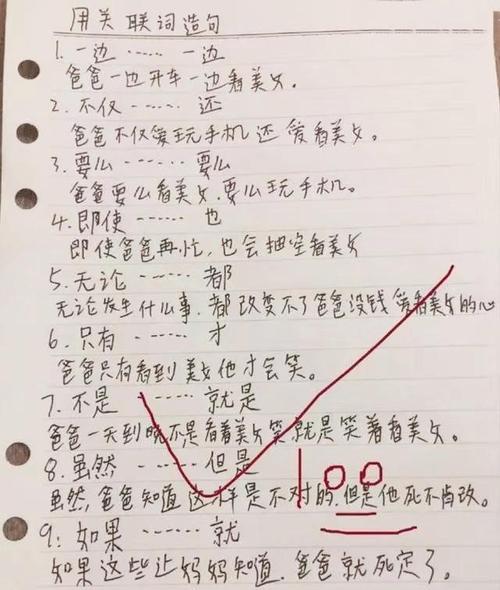 用关联词造句
1. 一边 …… 一边
爸爸一边开车一边看美女。
2. 不仅 …… 还
爸爸不仅爱玩手机还爱看美女。
3. 要么 …… 要么
爸爸要么看美女,要么玩手机。
4. 即使 …… 也
即使爸爸再忙,也会抽空看美女
5. 无论 …… 都
无论发生什么事,都改变不了爸爸没钱爱看美女的心
6. 只有 …… 才
爸爸只有看到美女他才会笑。
7. 不是 …… 就是
爸爸一天到晚不是看着美女笑,就是笑着看美女。
8. 虽然 …… 但是
虽然,爸爸知道这样是不对的,但是他死不肯改。
9: 如果 …… 就
如果这些让妈妈知道,爸爸就死定了。
100